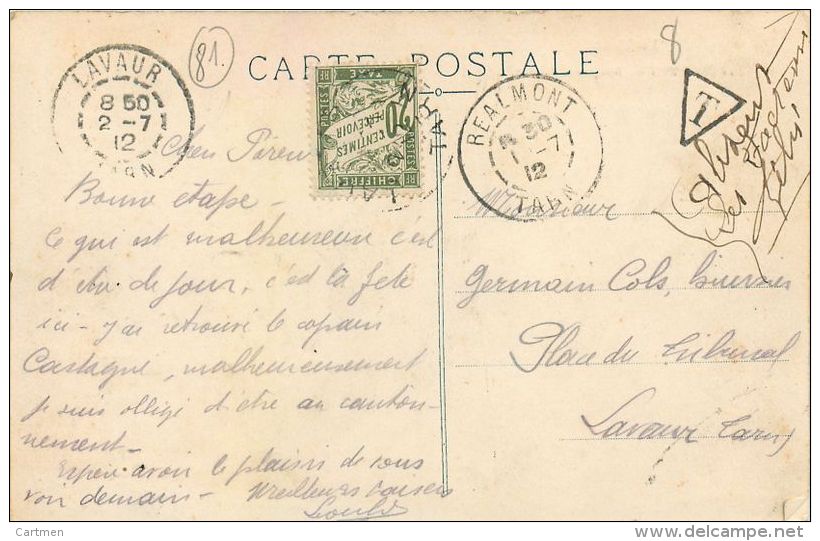 81.
8
CARTE POSTALE
LAVAUR
8 50
2 - 7
12
TARN
POSTES
TAXE
20
CENTIMES
PERCEVOIR
CHIFFRE
REALMONT
30
1 - 7
12
TARN
T
Bonne étape -
Ce qui est malheureux c'est
d'être de jour, c'est la fête
ici - J'ai retrouvé le copain
Castagne, malheureusement
je suis obligé d'être au canton-
nement -
Espère avoir le plaisir de vous
voir demain - Meilleurs baisers
Louis
Monsieur
Germain Cols,
Place du Tribunal
Lavaur Tarn
Carmen
www.delcampe.net